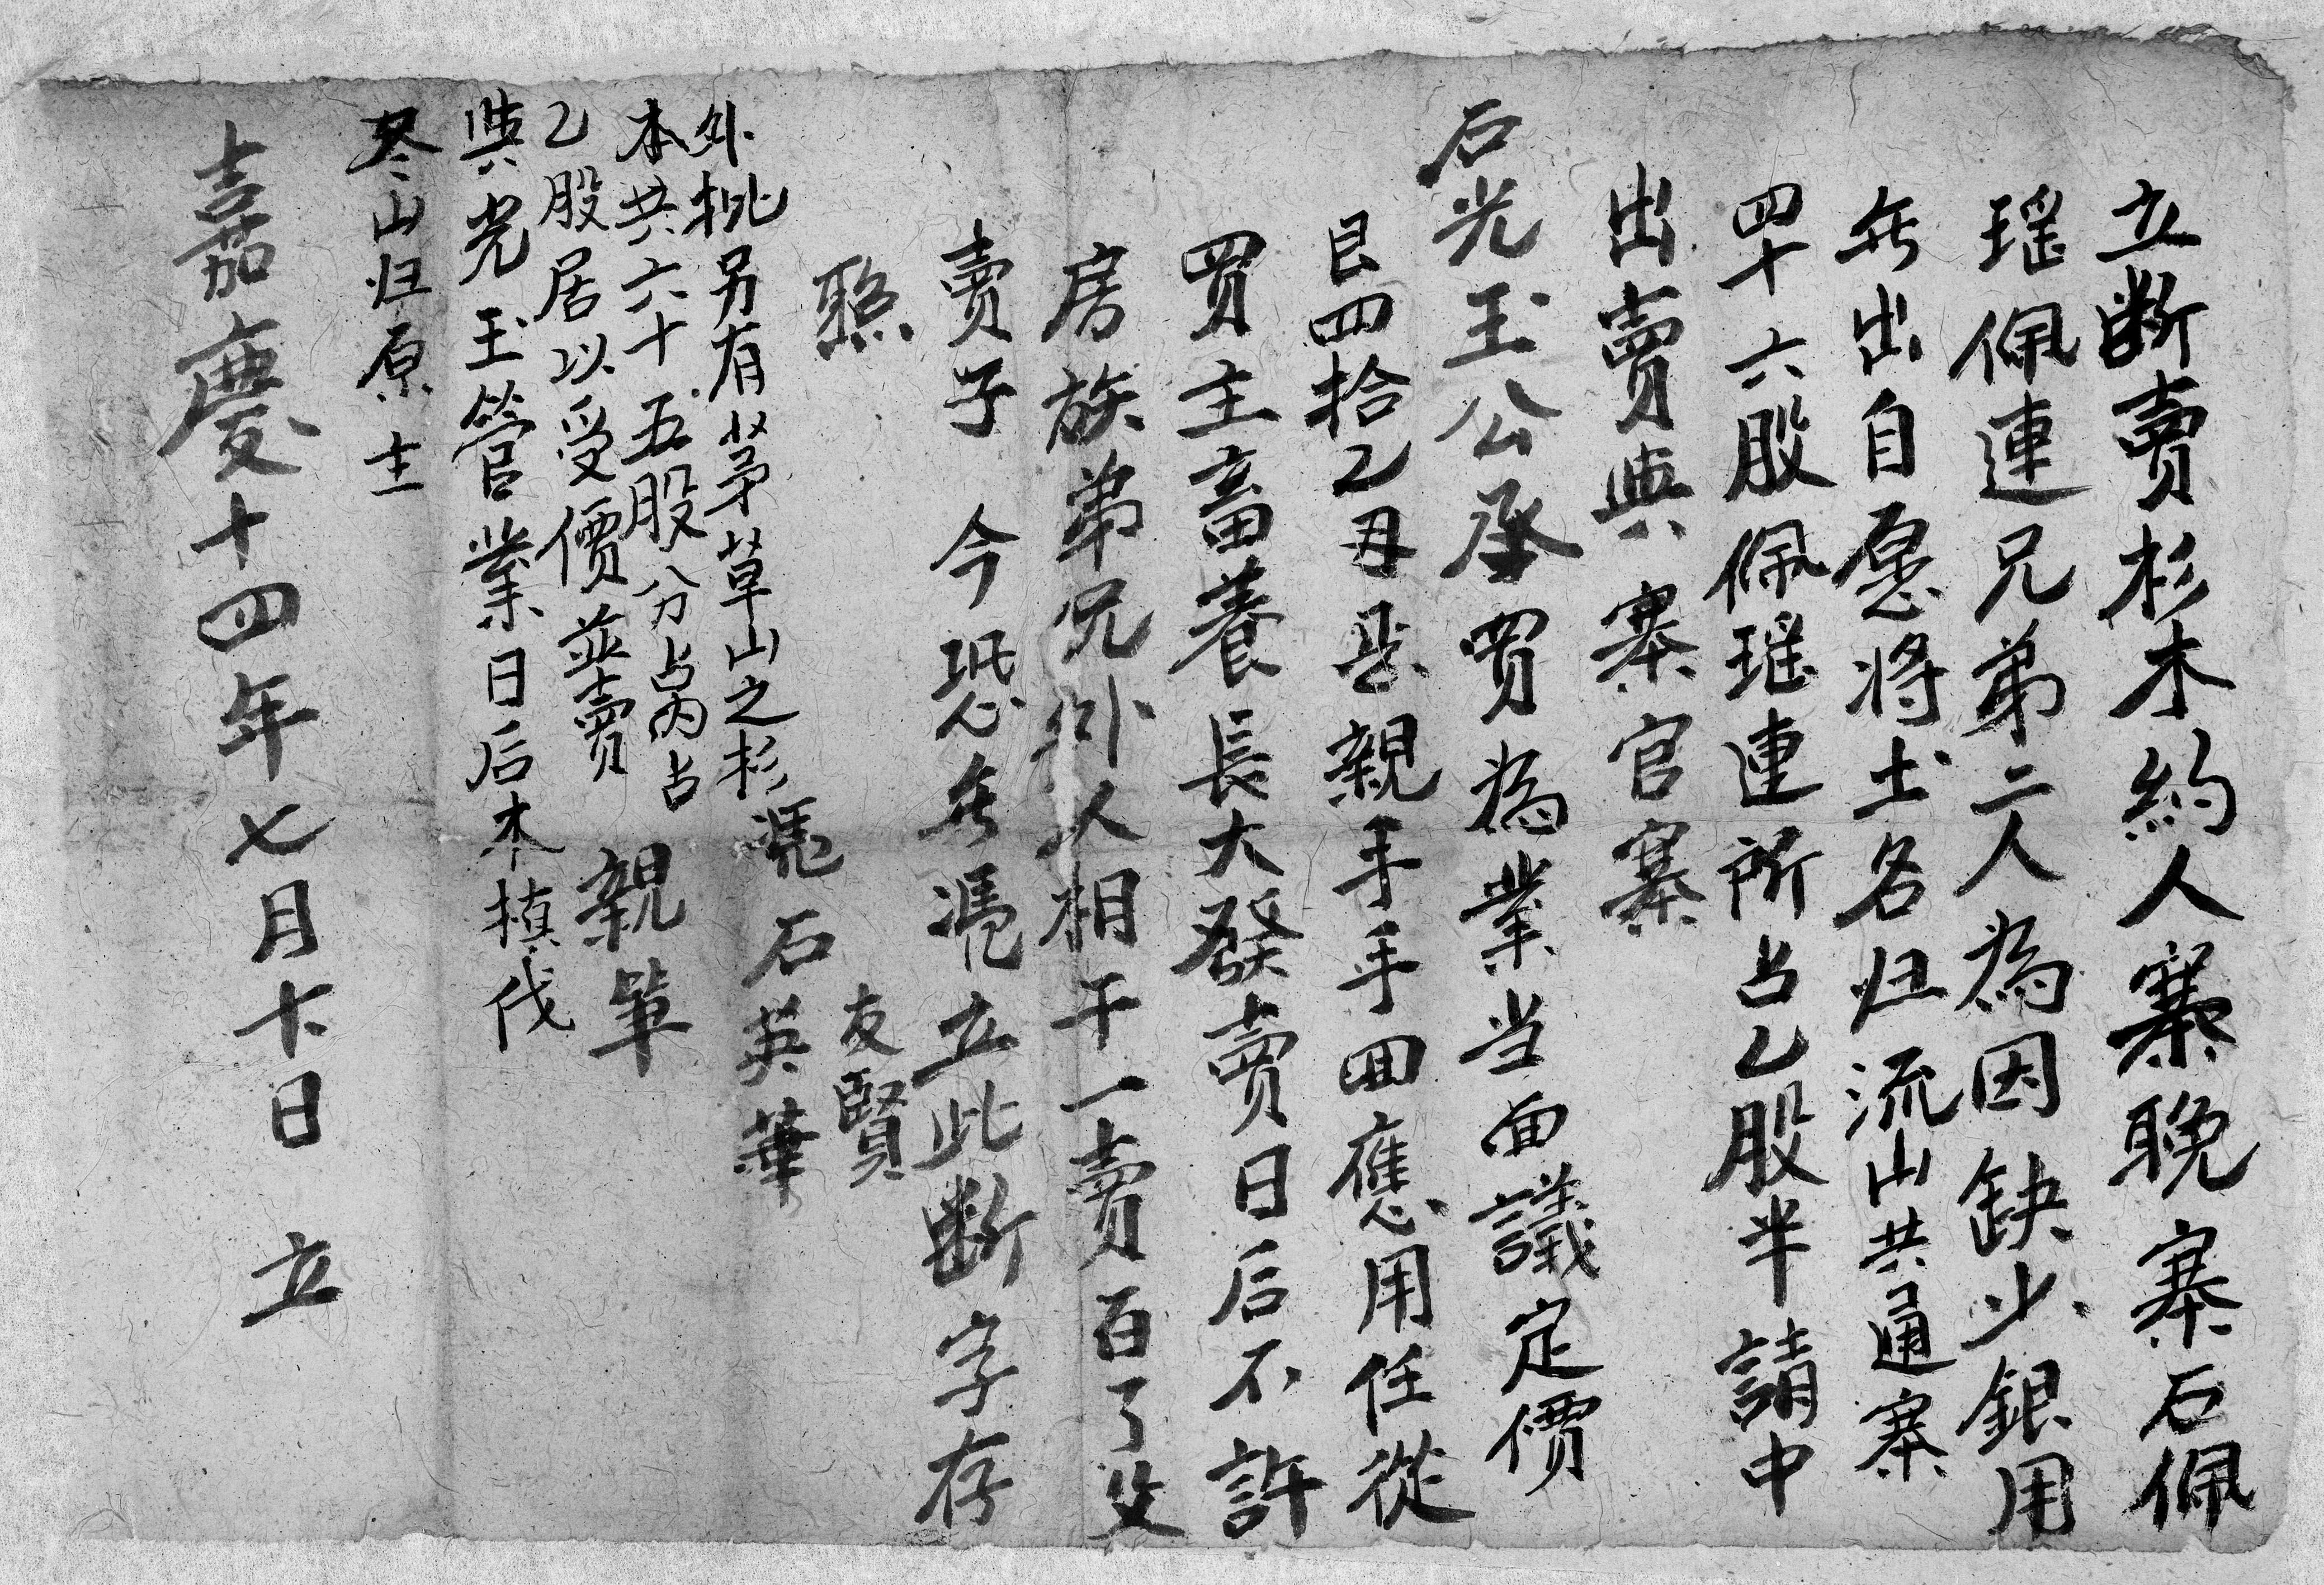 立断賣杉木約人寨晚寨石佩
瑶佩連兄弟二人為因缺少銀用
無出自愿将土名归流山共通寨
四十六股佩瑶連所占乙股半請中
出賣與寨官寨
石光玉公承買為業当面議定價
艮四拾乙両親手手回應用任從
買主畜養長大發賣日后不許
房族弟兄外人相干一賣百了父
賣子今恐無憑立此断字存
照
外批另有茅草山之杉
本共六十五股分占占
乙股居以受價並賣
與光玉管業日后木植伐
尽山归原主
憑石友賢
英華
親筆
嘉慶十四年七月十日立